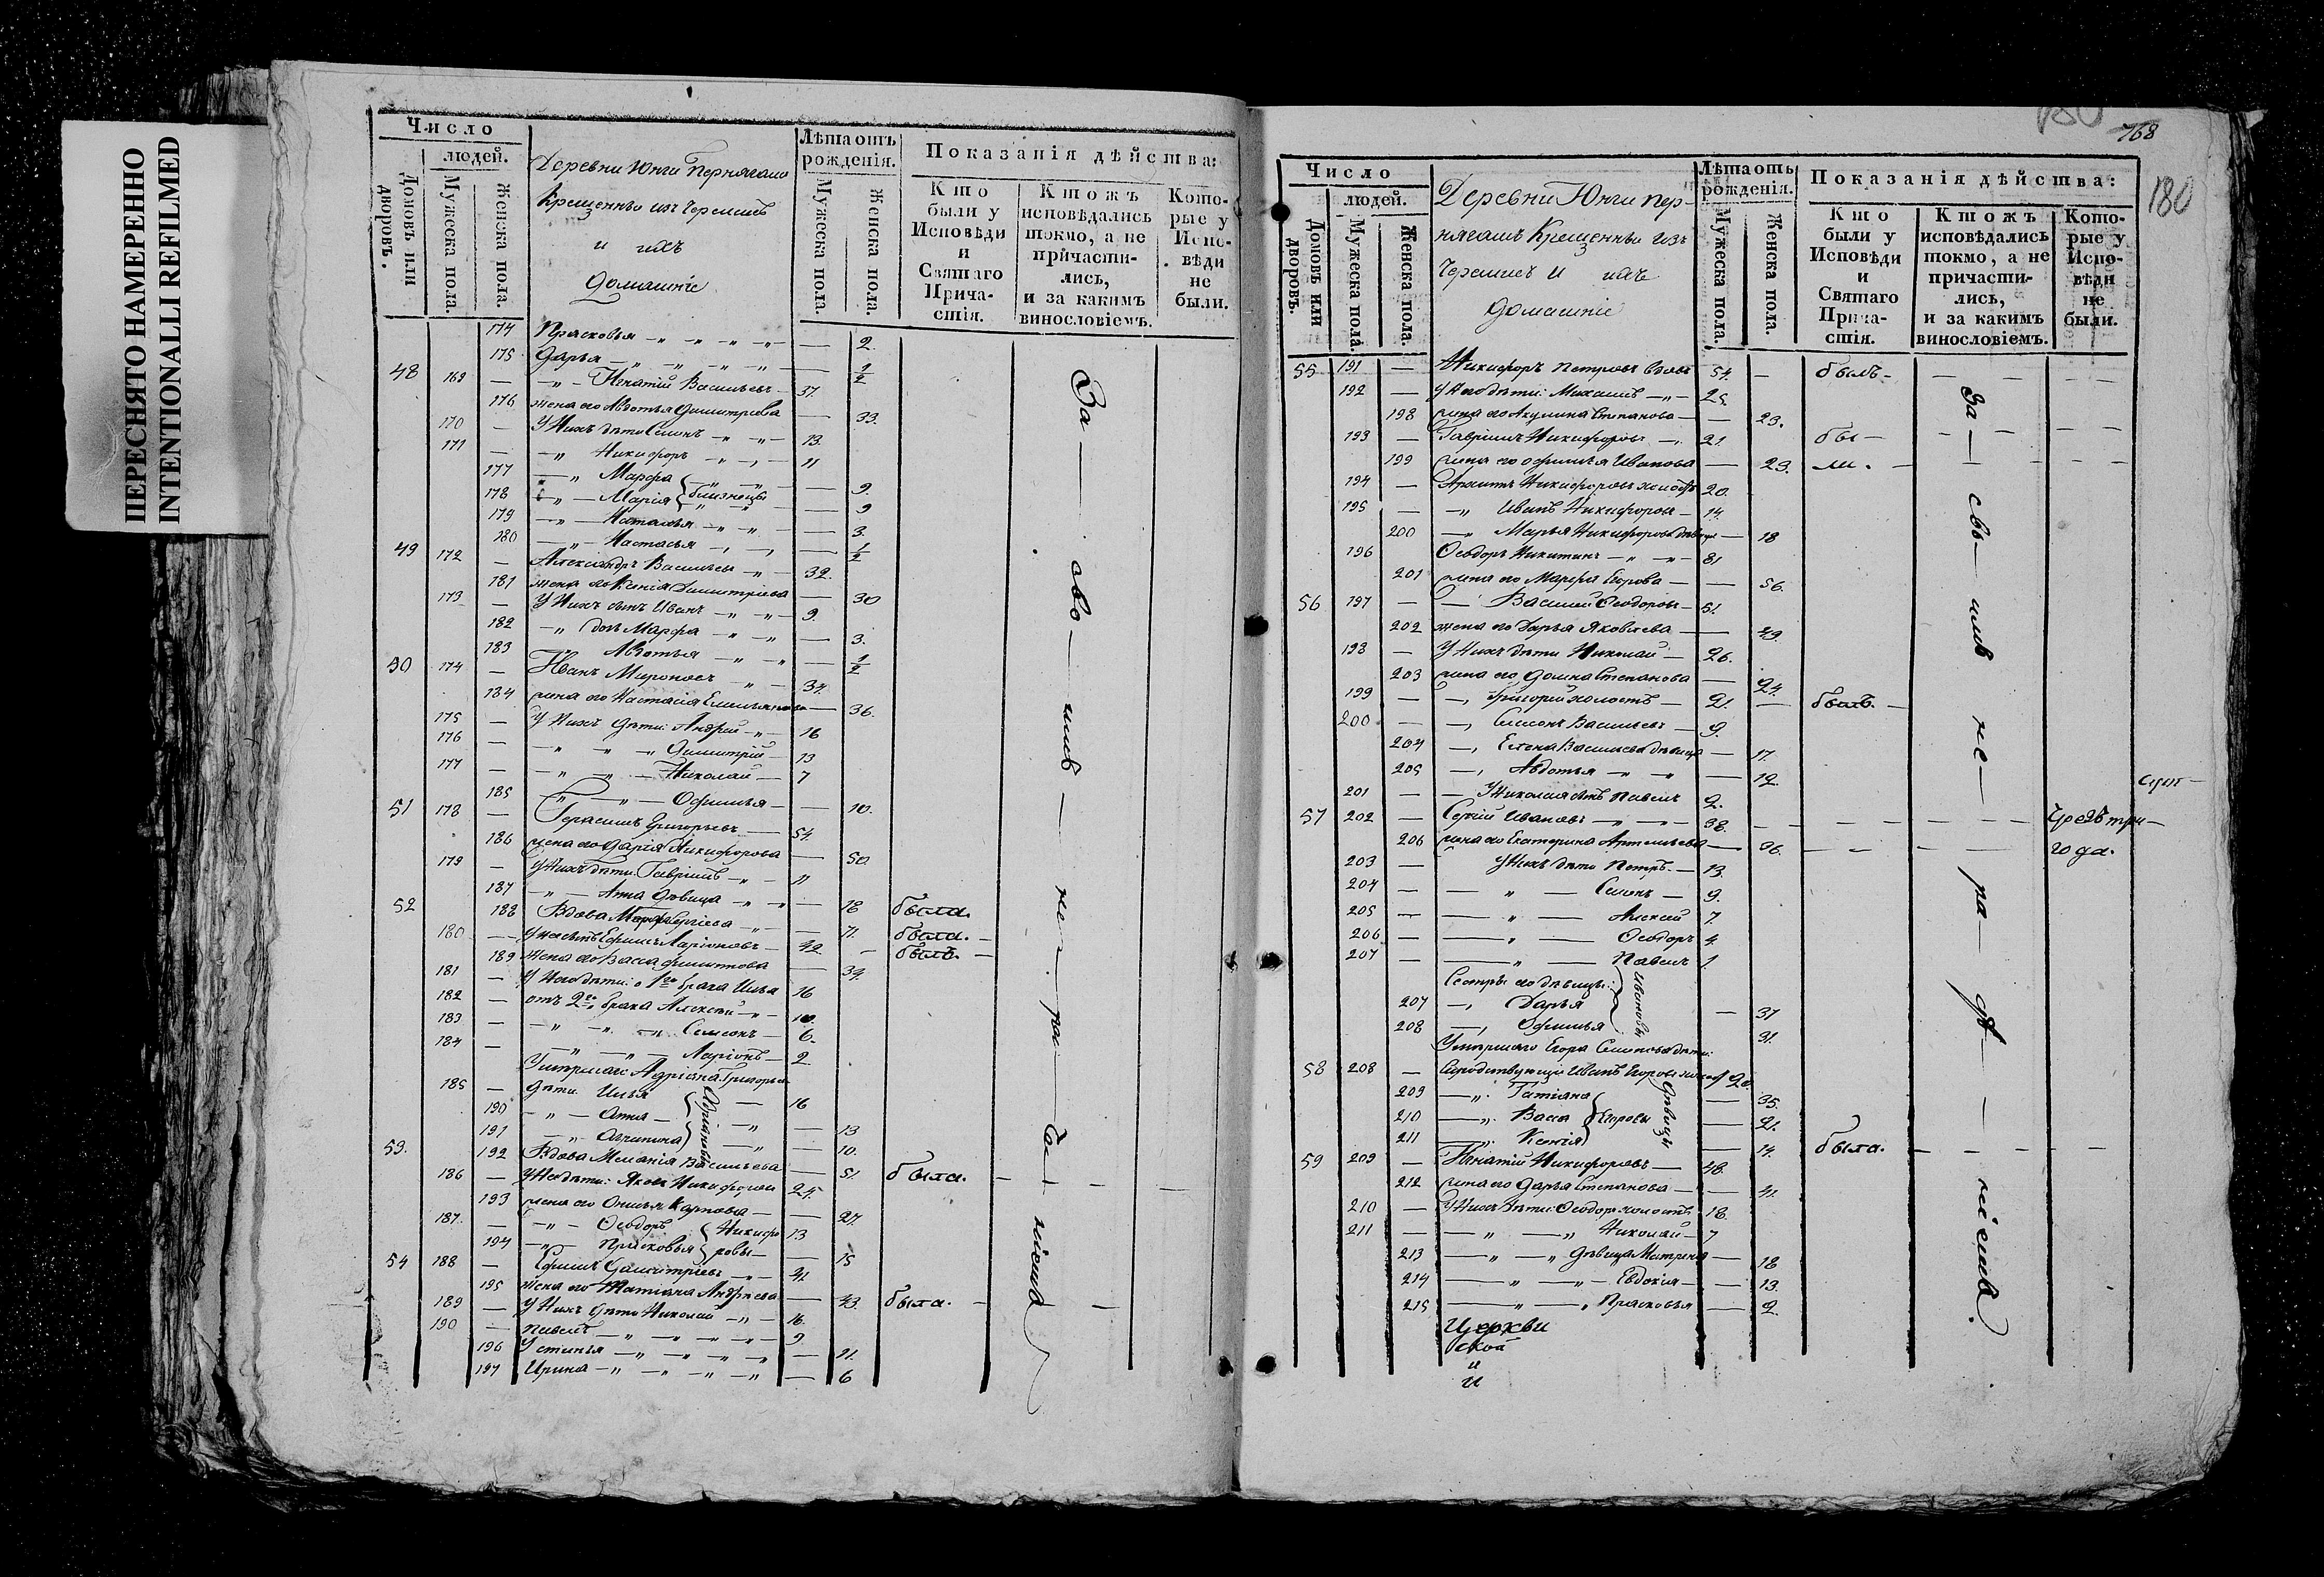 ПЕРЕСНЯТО НАМЕРЕННО
INTENTIONALLI REFILMED
Число
людей.
Домовъ или дворовъ.
Мужеска пола.
Женска пола.
Деревни Юнги Пернягашъ
Крещенныи изъ Черемисъ
и ихъ
домашніе
Лѣта отъ рожденія.
Мужеска пола
Женска пола
Показанія дѣйства:
Кто были у Исповѣди и Святаго Причастія.
Ктожъ исповѣдались токмо, а не причастились, и за какимъ винословіемъ.
Которые у Исповѣди не были.
174 Прасковья — 2.
175 Дарья — 1/2
48 169 — Игнатій Васильевъ 37.
176 жена его Авдотья Димитріева — 33.
170 — У Нихъ дѣти Симонъ 13.
171 — Никифоръ 11
177 Марфа близнецы — 9.
178 Марія — 9
179 Наталья — 3.
180 Настасья — 1/2
49 172 — Александръ Васильевъ 32.
181 жена его Ксенія Димитріева — 30
173 — У Нихъ сынъ Иванъ 9.
182 дочь Марфа — 3.
183 Авдотья — 1/2
50 174 — Иванъ Мироновъ 34.
184 жена его Настасія Емельянова — 36.
175 — У Нихъ дѣти: Андрей 16
176 — Димитрій 13
177 — Николай — 7
185 Офимья — 10.
51 178 — Герасимъ Григорьевъ 54.
186 жена его Дарія Никифорова — 50.
179 — У Нихъ дѣти. Гавріилъ 11
187 Анна дѣвица — 18 была.
52 188 Вдова Марфа Сергіева — 71. была.
180 — У нея сынъ Ефимъ Ларіоновъ 42. — былъ.
189 жена его Васса Филиппова — 34.
181 — У Него дѣти: о 1го брака Илья 16
182 — отъ 2го брака Алексѣй 10.
183 — Симеонъ 6.
184 — Ларіонъ 2.
Умершаго Адріана Григорьева
185 — дѣти Илья 16
190 Анна — 13
191 Агрипина Адріановы — 10.
53. 192 Вдова Меланія Васильева — 51. была.
186 — У Нея дѣти: Яковъ Никифоровъ 25.
193 жена его Онисья Карпова — 27.
187. — Ѳеодоръ Никифо 13
194 Прасковья ровы — 15
54 188 — Ефимъ Димитріевъ 41
195 жена его Татіана Андреева — 43. была.
189 — У Нихъ дѣти Николай 16.
190 — Павелъ 9
196 Устинья — 11.
197 Ирина — 6
За сво имъ не ра дѣ ніемъ
768
180
Число
людей.
Домовъ или дворовъ.
Мужеска пола.
Женска пола.
Деревни Юнги Пер-
нягашъ Крещенныи изъ
Черемисъ и ихъ
домашніе
Лѣта отъ рожденія.
Мужеска пола.
Женска пола.
Показанія дѣйства:
Кто были у Исповѣди и Святаго Причастія.
Ктожъ исповѣдались токмо, а не причастились, и за какимъ винословіемъ.
Которые у Исповѣди не были.
55 191 — Никифоръ Петровъ вдовъ 54. — былъ
192 — У Него дѣти: Михаилъ 25.
198 жена его Акулина Степанова — 23.
193 — Гавріилъ Никифоровъ 21. бы —
199 жена его Офимья Иванова — 23. ли.
194 — Архипъ Никифоровъ холостъ 20.
195 — Иванъ Никифоровъ 14.
200 Марья Никифорова дѣвица — 18
196 Ѳеодоръ Никитинъ 81
201 жена его Марфа Егорова — 56.
56 197 — Василій Ѳеодоровъ 51.
202 жена его Дарья Яковлева — 49.
198 — У Нихъ дѣти Николай — 26.
203 жена его Домна Степанова — 24.
199 — Григорій холостъ — 21. — былъ.
200 — Симеонъ Васильевъ 9.
204 Елена Васильева дѣвица — 17.
205 Авдотья — 12.
201 — У Николая сынъ Павелъ 2.
57 202 — Сергій Ивановъ 38. чрезъ три
206 жена его Екатерина Артемьева — 36. года.
203 — У Нихъ дѣти Петръ. — 13.
204 — Симонъ — 9.
205 — Алексѣй 7.
206 — Ѳеодоръ 4.
207 — Павелъ 1.
Сестры его дѣвицы: Ивановы
207 Дарья — 37
208 Офимья — 31.
Умершаго Егора Симонова дѣти:
58 208 — Иванъ Егоровъ холостъ 20.
209 Татіана — 35.
210 Васса Егоровы дѣвицы — 21.
211 Ксенія — 14. была.
59 209 — Игнатій Никифоровъ — 48.
212 жена его Дарья Степанова — 41.
210 — У Нихъ дѣти: Ѳеодоръ холостъ 18.
211 — Николай — 7
213 дѣвица Матрена — 18
214 Евдокія — 13.
215 Прасковья — 2.
За сво имъ не ра дѣ ніемъ.
Церкви
ской
и
и